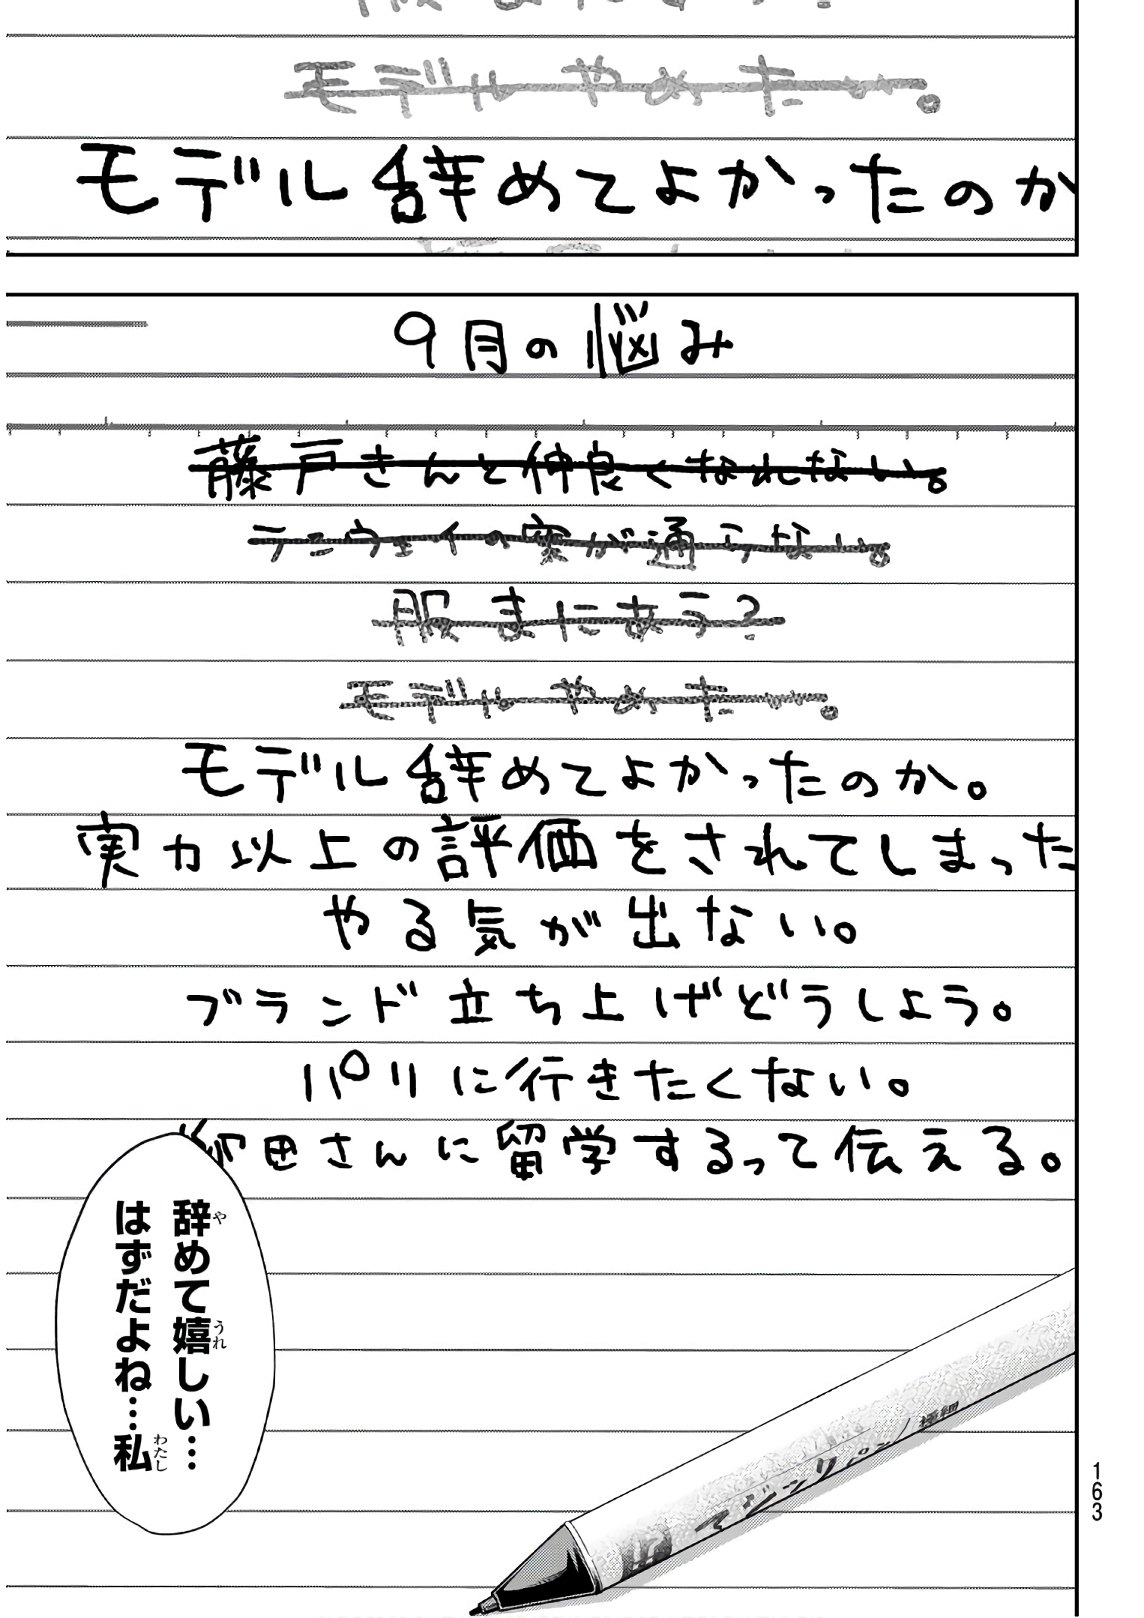 モデルやめたい。
モデル辞めてよかったのか
9月の悩み
藤戸さんと仲良くなれない。
ランウェイの案が通らない。
服まにあう?
モデルやめたい。
モデル辞めてよかったのか。
実力以上の評価をされてしまった
やる気が出ない。
ブランド立ち上げどうしよう。
パリに行きたくない。
柳田さんに留学するって伝える。
辞めて嬉しい…
はずだよね…私
マジックペン 極細
163